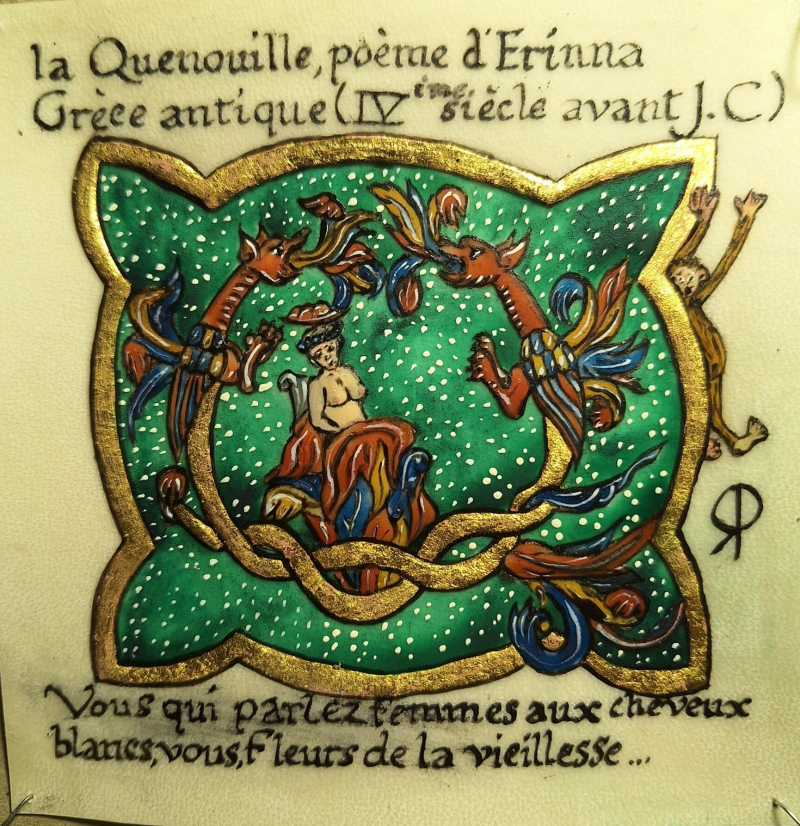 la Quenouille, poème d'Erinna
Grèce antique (IVième siècle avant J.C)
Vous qui parlez femmes aux cheveux
blancs, vous, fleurs de la vieillesse...